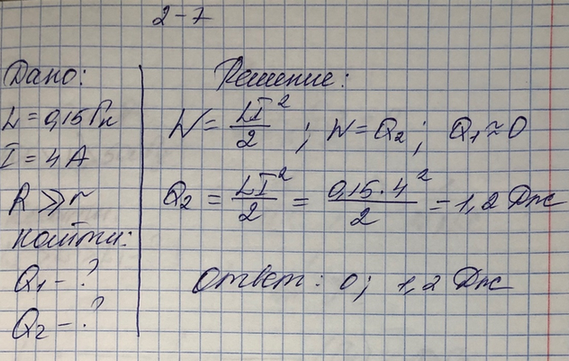 2-7
Дано:
L = 0,15 Гн
I = 4 А
R ≫ r
Найти:
Q₁ - ?
Q₂ - ?
Решение:
W = LI²/2 ; W = Q₂ ; Q₁ ≈ 0
Q₂ = LI²/2 = 0,15·4²/2 = 1,2 Дж
Ответ: 0; 1,2 Дж